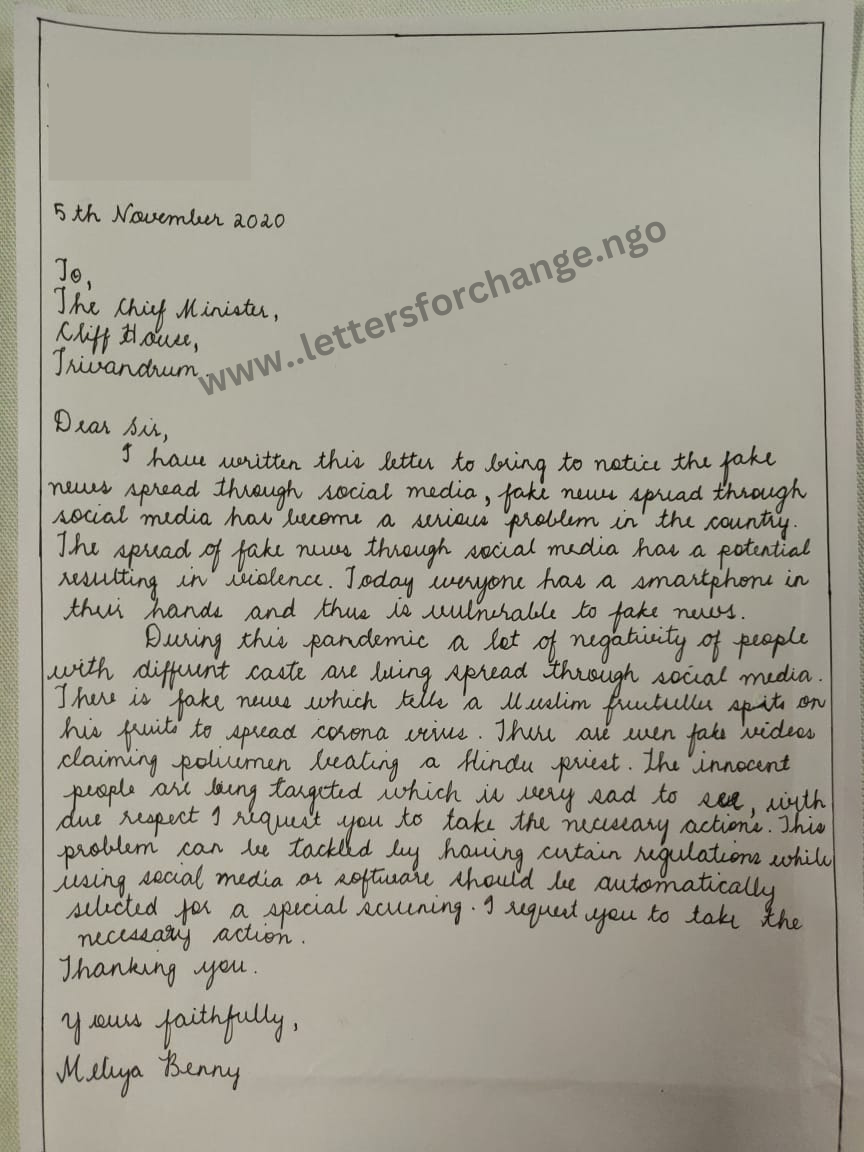 5th November 2020
To,
The Chief Minister,
Cliff House,
Trivandrum.
www..lettersforchange.ngo
Dear Sir,
I have written this letter to bring to notice the fake
news spread through social media, fake news spread through
social media has become a serious problem in the country.
The spread of fake news through social media has a potential
resulting in violence. Today everyone has a smartphone in
their hands and thus is vulnerable to fake news.
During this pandemic a lot of negativity of people
with different caste are being spread through social media.
There is fake news which tells a Muslim fruitseller spits on
his fruits to spread corona virus. There are even fake videos
claiming policemen beating a Hindu priest. The innocent
people are being targeted which is very sad to see, with
due respect I request you to take the necessary actions. This
problem can be tackled by having certain regulations while
using social media or software should be automatically
selected for a special screening. I request you to take the
necessary action.
Thanking you.
Yours faithfully,
Meliya Benny